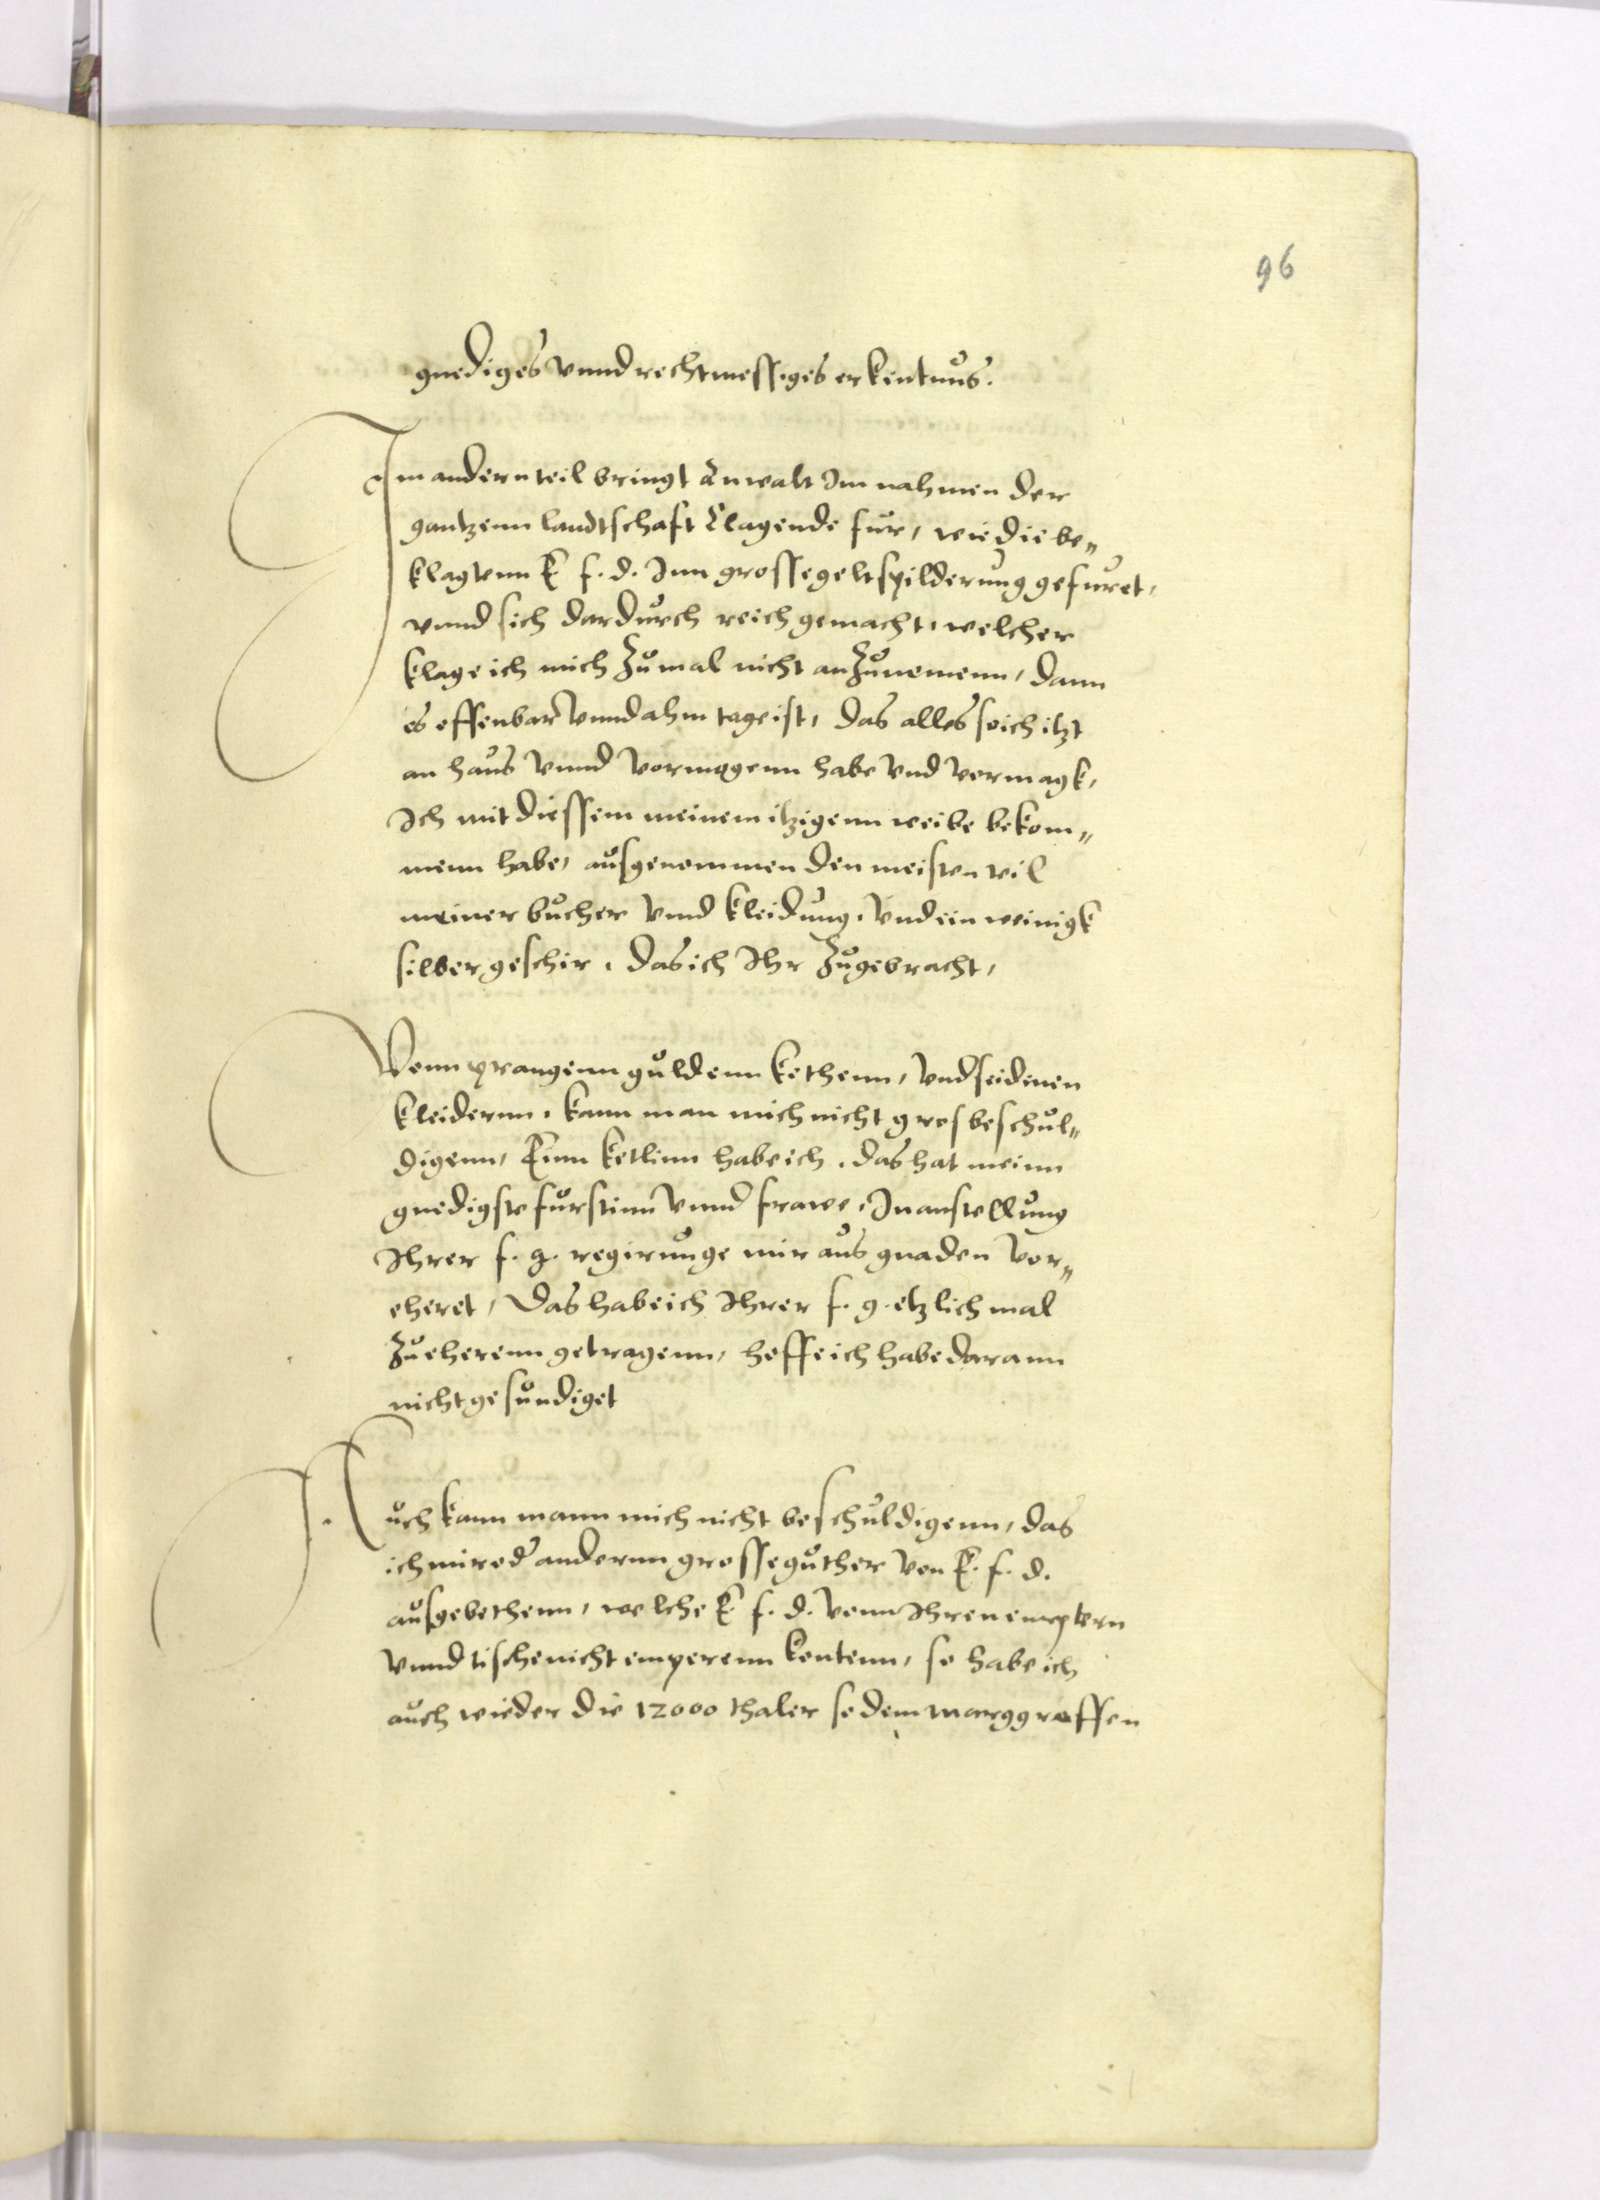 96
gnediges vnnd rechtmessiges erkentnus.
Im andern teil bringt Anwalt Im nahmen der
gantzenn landtschaft Clagende fur, wie die be„
klagtenn E f. d. Inn grosse geltspilderung gefuret,
vnnd sich dardurch reich gemacht, welcher
klage ich mich Zumal nicht anZunemenn, dann
es offenbar vnnd ahm tage ist, das alles so ich itzt
an haus vnnd vormogenn habe vnd vermagk,
Ich mit diessem meinem itzigenn weibe bekom„
menn habe, ausgenommen den meisten teil
meiner bucher vnnd kleidung. vnd ein weinigk
silbergeschir. das ich Ihr Zugebracht,
Vonn prangenn guldenn kethenn, vnd seidenen
kleidernn. kann man mich nicht gros beschul„
digenn, Einn ketlinn habe ich. das hat meinn
gnedigste furstinn vnnd frawe, In anstellung
Ihrer f. g. regirunge mir aus gnaden vor„
eheret, Das habe ich Ihrer f. g. etzlich mal
Zu eherenn getragenn, hoffe ich habe darann
nicht gesundiget
Auch kann mann mich nicht beschuldigenn, das
ich mir od andernn grosse guther von E. f. d.
ausgebethenn, welche E f. d. vonn Ihren emptern
vnnd tische nicht emperenn kontenn, so habe ich
auch wieder die 12000 thaler so dem marggraffen